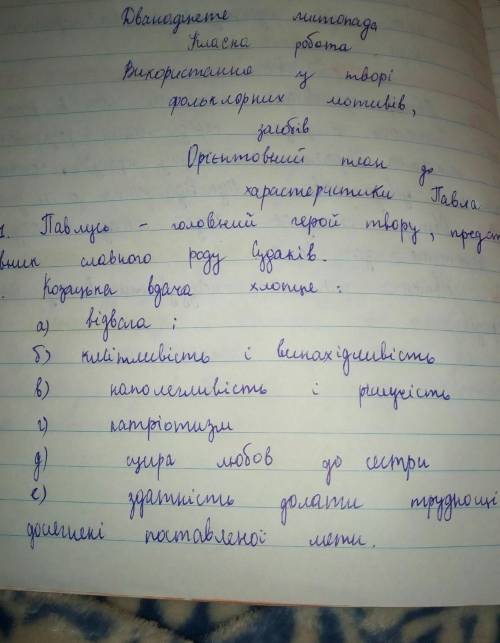 Дванадцяте листопада
Класна робота
Використання у творі
фольклорних мотивів,
засобів
Орієнтовний план до
характеристики Павла
1. Павлусь - головний герой твору, предст
вник славного роду Судаків.
. Козацька вдача хлопця :
а) відвага ;
б) кмітливість і винахідливість
в) наполегливість і рішучість
г) патріотизм
д) щира любов до сестри
е) здатність долати труднощі
досягнені поставленої мети.